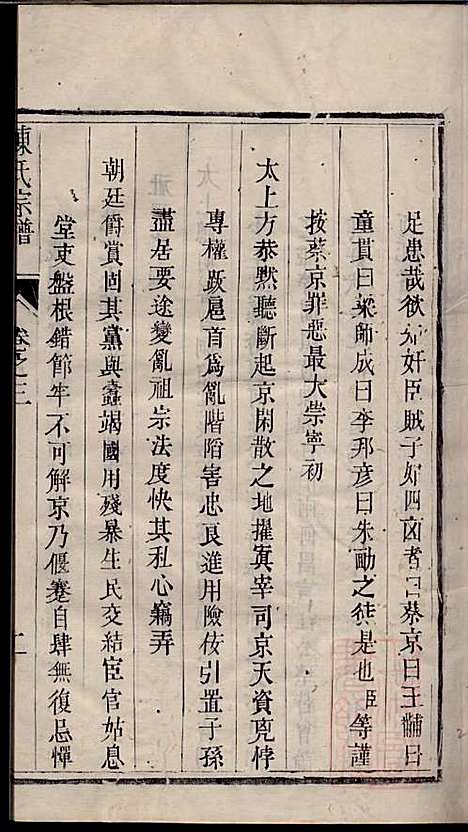 足患哉欲知奸臣賊子如四凶者曰蔡京曰王黼曰
童貫曰梁師成曰李邦彥曰朱勔之徒是也臣等謹
按蔡京罪惡最大崇寧初
太上方恭默聽斷起京閑散之地擢寘宰司京天資兇悖
專權跋扈首爲亂階陷害忠良進用險佞引置子孫
盡居要途變亂祖宗法度快其私心竊弄
朝廷爵賞固其黨與蠹竭國用殘暴生民交結宦官姑息
堂吏盤根錯節牢不可解京乃偃蹇自肆無復忌憚
陳氏宗譜 卷之三